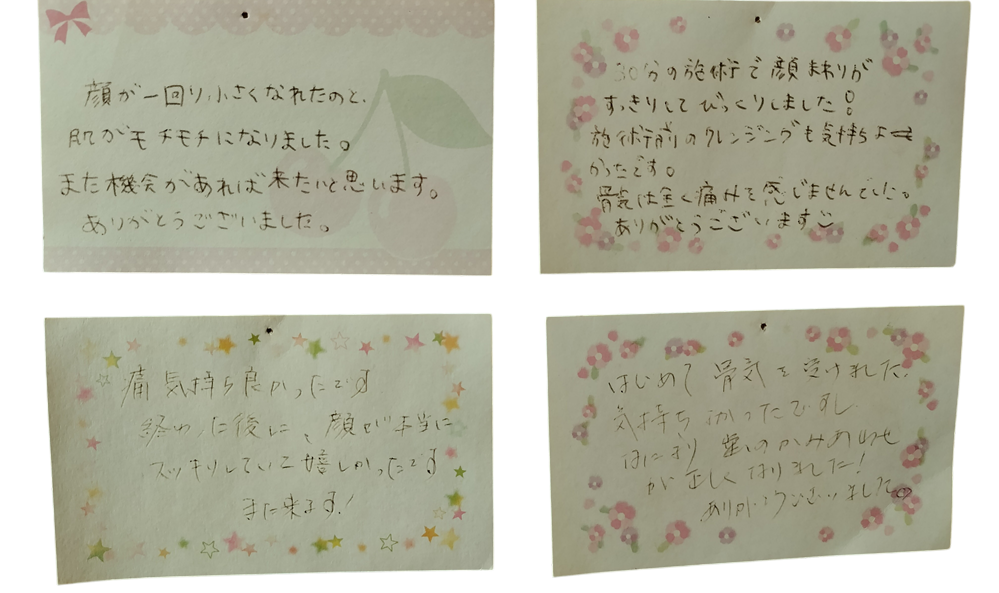 顔が一回り小さくなれたのと、
肌がモチモチになりました。
また機会があれば来たいと思います。
ありがとうございました。
30分の施術で顔まわりが
すっきりしてびっくりしました!
施術前のクレンジングも気持ちよ
かったです。
骨気は全く痛みを感じませんでした。
ありがとうございます
痛気持ち良かったです
終わった後に、顔が本当に
スッキリしていて嬉しかったです
また来ます!
はじめて骨気を受けました。
気持ちよかったですし
なにより歯のかみあわせ
が正しくなりました!
ありがとうございました。